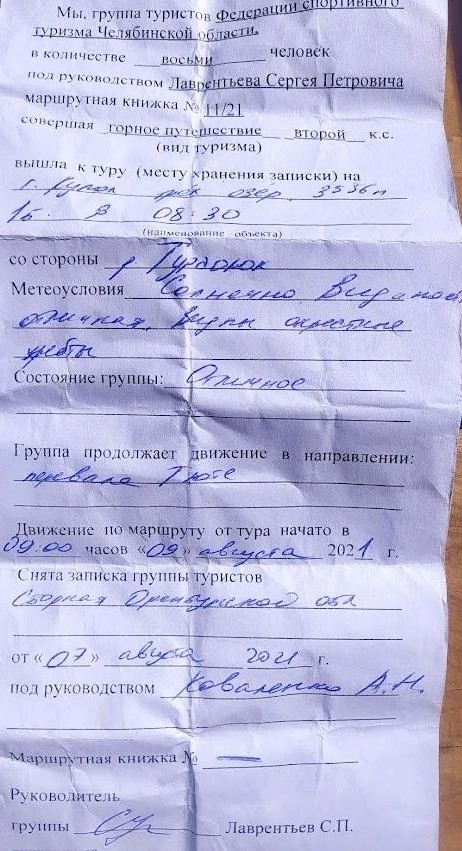 Мы, группа туристов Федерации спортивного
туризма Челябинской области,
в количестве восьми человек
под руководством Лаврентьева Сергея Петровича
маршрутная книжка № 11/21
совершая горное путешествие второй к.с.
(вид туризма)
вышла к туру (месту хранения записки) на
г. Купол озёр 3536м
1Б. в 08:30
(наименование объекта)
со стороны р
Метеоусловия Солнечно Видимость
отличная. Видны окрестные
хребты
Состояние группы: Отличное
Группа продолжает движение в направлении:
перевала Тюте
Движение по маршруту от тура начато в
09:00 часов «09» августа 2021 г.
Снята записка группы туристов
Сборная Оренбургской обл
от «07» августа 2021 г.
под руководством Коваленко А.Н.
Маршрутная книжка № —
Руководитель
группы Лаврентьев С.П.